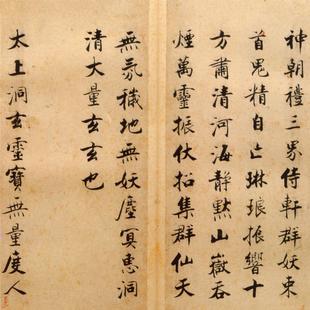 神朝禮三界侍軒群妖束
首鬼精自亡琳琅振響十
方肅清河海靜默山嶽吞
煙萬靈振伏招集群仙天
無氛穢地無妖塵冥慧洞
清大量玄玄也
太上洞玄靈寶無量度人